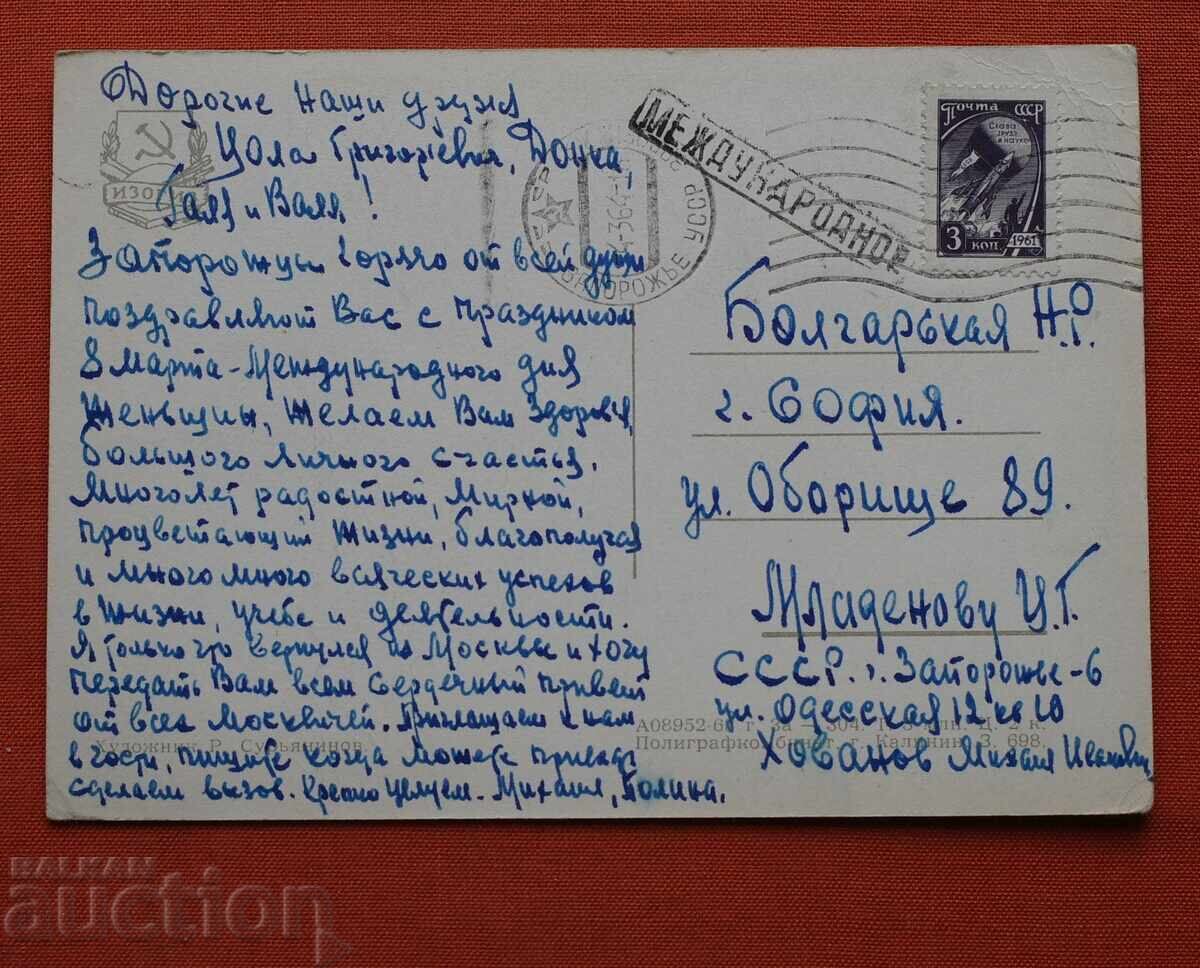 Дорогие наши друзья
Цола Григорьевна, Донка,
Галя и Валя!
Запорожцы горячо от всей души
поздравляют Вас с праздником
8 Марта - Международного дня
женьщины, желаем Вам здоровья,
большого личного счастья.
Много лет радостной, мирной,
процветающий жизни, благополучия
и много много всяческих успехов
в жизни, учебе и деятельности.
Я только что вернулся из Москвы и хочу
передать Вам всем сердечный привет
от всех Москвичей. Приглашаем к нам
в гости, пишите когда можете приехать
сделаем вызов. Крепко целуем. Михаил, Полина.
ИЗОГИЗ
Художник Р. Сурьянинов.
МЕЖДУНАРОДНОЕ
СССР
ЗАПОРОЖЬЕ УССР
Почта СССР
Слава
труду
и науке
3 коп. 1961
Болгарьская Н.Р.
г. София.
ул. Оборище 89.
Младенову Ц.Г.
СССР. г. Запорожье-6
ул. Одесская 12 кв 10
Хованов Михаил Иванович
А08952-6 г. За 304. Ц. к.
Полиграфкомбинат, г. Калинин, З. 698.
BALKAN
auction